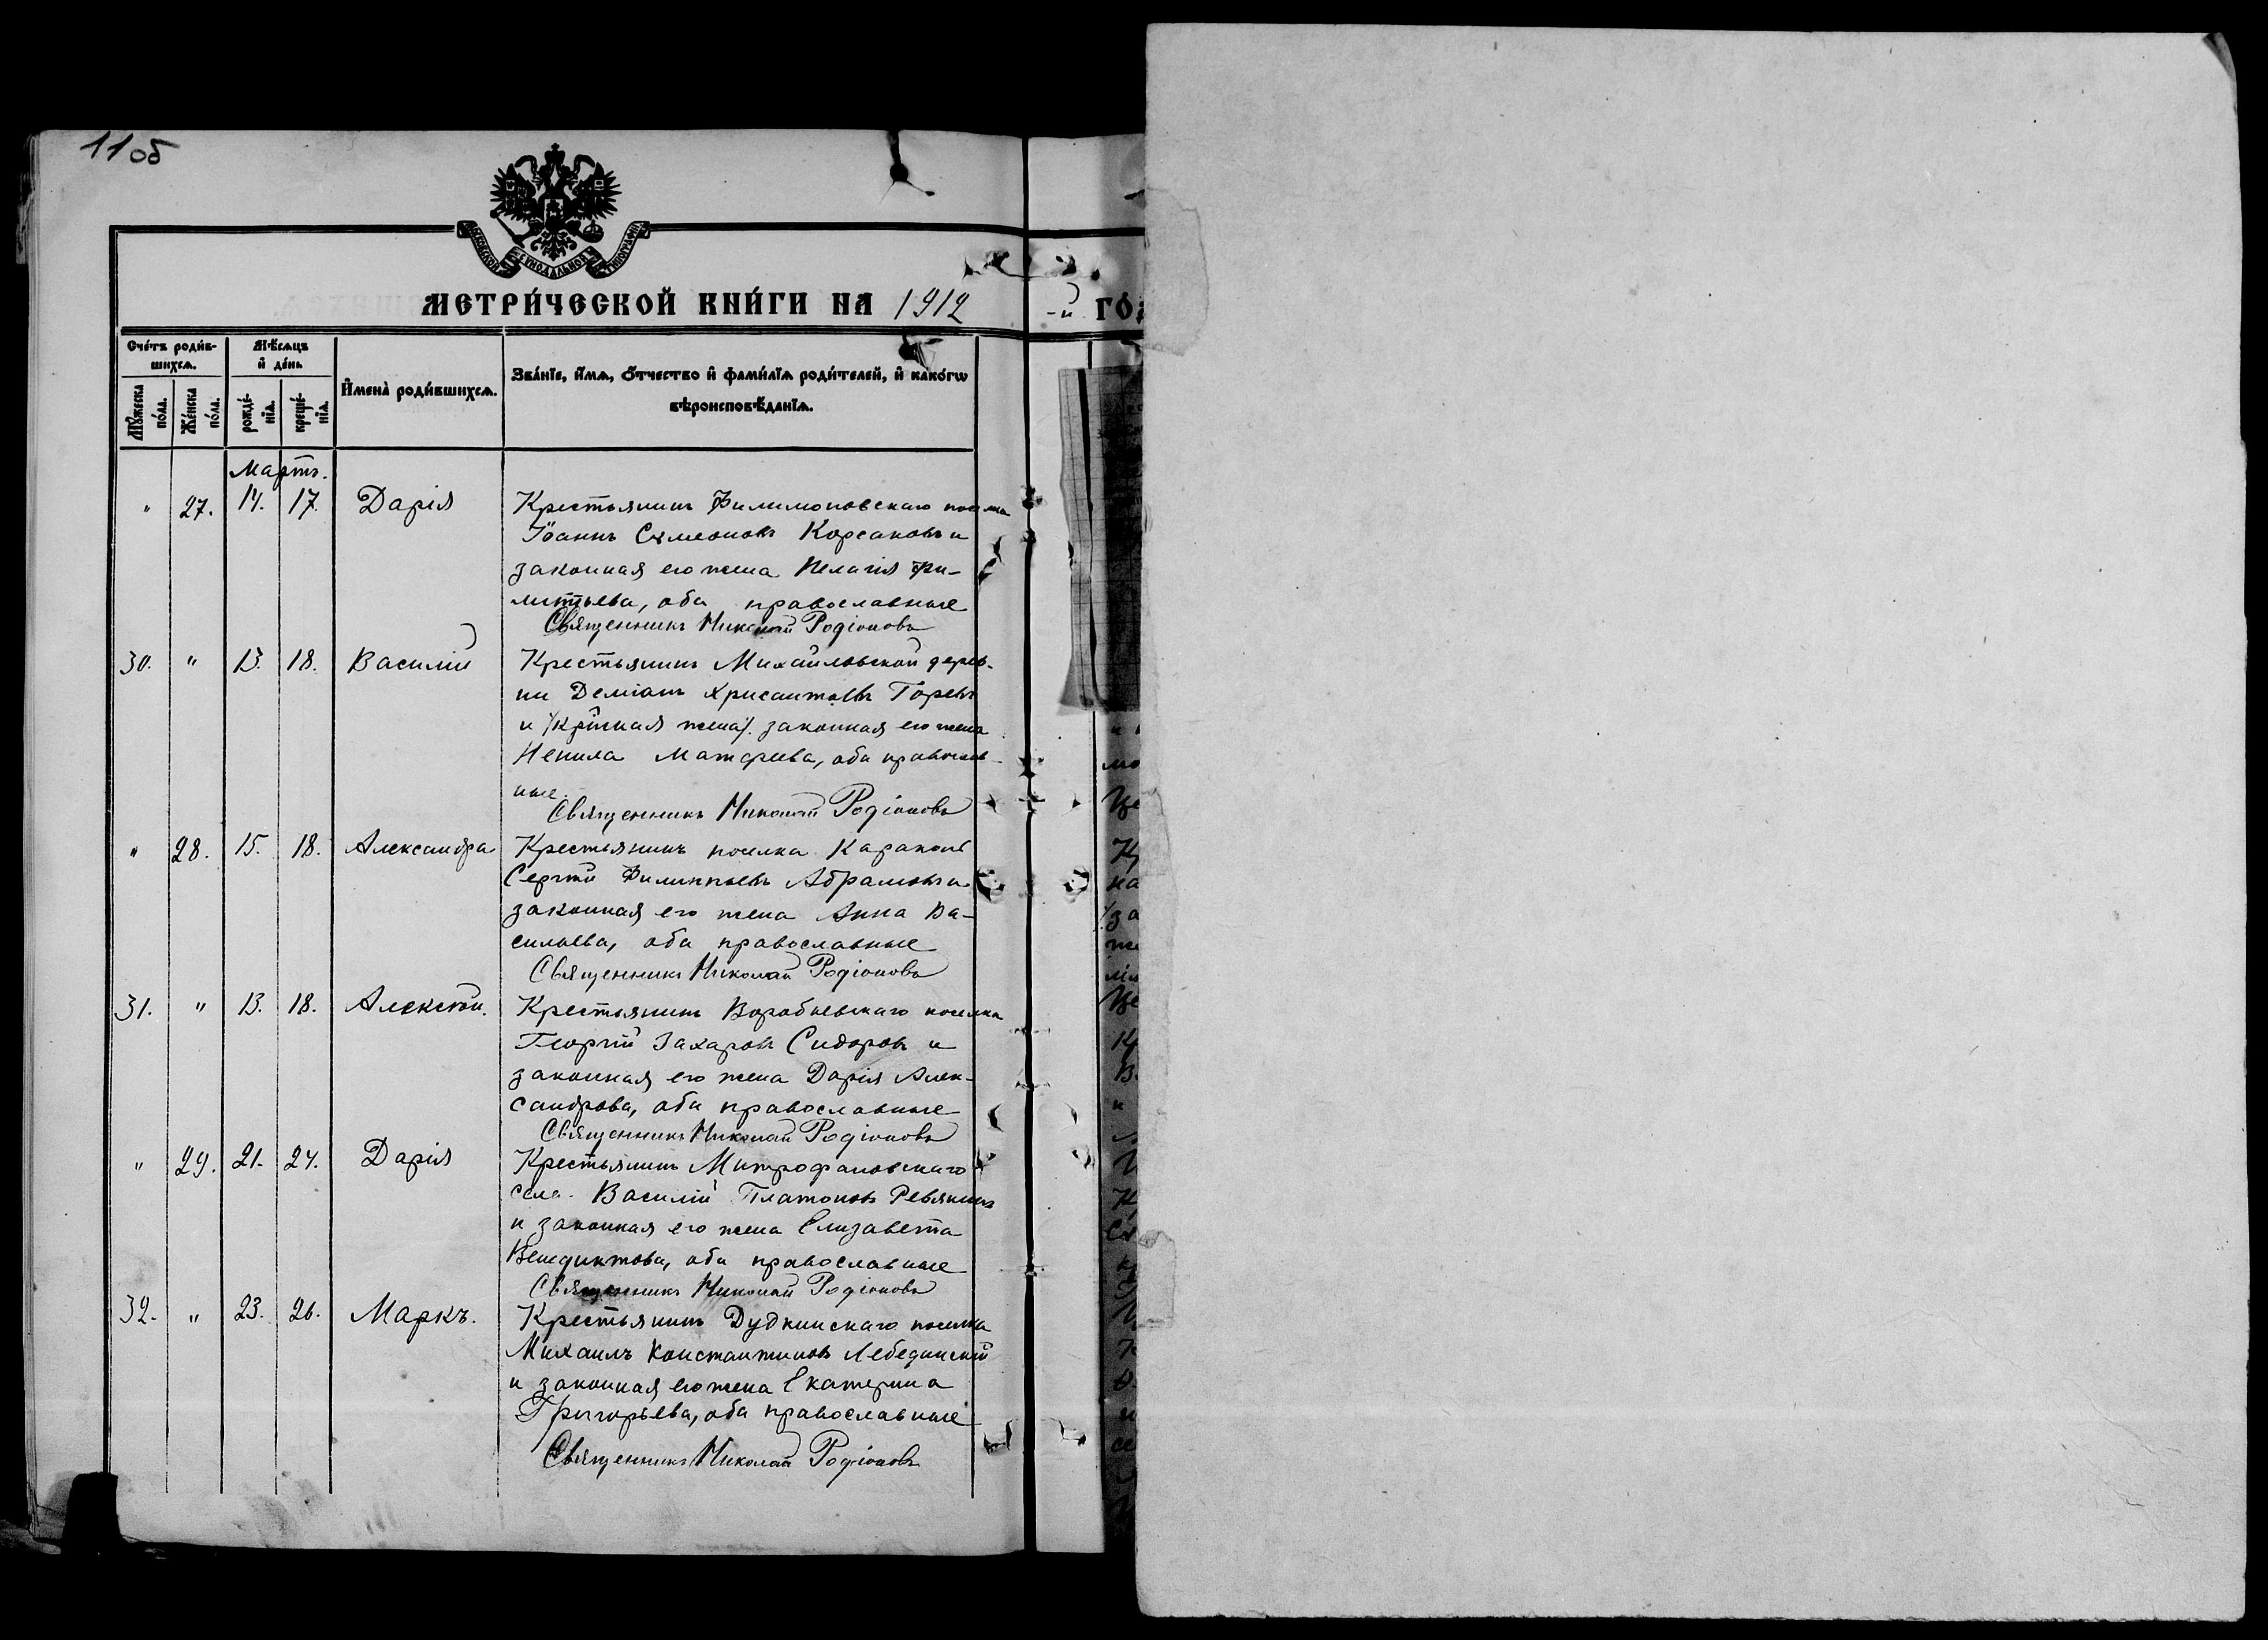 11 об
МОСКОВСКОЙ СѴНОДАЛЬНОЙ ТИПОГРАФІИ
МЕТРИ́ЧЕСКОЙ КНИ́ГИ НА 1912 -й ГО́
Сче́тъ роди́в-
шихсѧ.
Мѣ́сѧцъ
и҆ де́нь
И҆мена̀ роди́вшихсѧ.
Зва́нїе, и҆́мѧ, ѻ҆́тчество и҆ фами́лїѧ роди́телей, и҆ како́гѡ
вѣроисповѣ́данїѧ.
Мꙋ́жеска по́ла.
Же́нска по́ла.
рожде́-
нїѧ.
креще́-
нїѧ.
Мартъ.
" 27. 14. 17. Дарія Крестьянинъ Филимоновскаго поселка
Іоаннъ Сѵмеоновъ Корсаковъ и
законная его жена Пелагія Фи-
липпьева, оба православные
Священникъ Николай Родіоновъ
30. " 13. 18. Василій Крестьянинъ Михайловской дерев-
ни Деміанъ Хрисантовъ Горевъ
и законная его жена
Ненила Матфеева, оба православ-
ные.
Священникъ Николай Родіоновъ
" 28. 15. 18. Александра Крестьянинъ поселка Караколь
Сергій Филипповъ Абрамовъ и
законная его жена Анна Ва-
сильева, оба православные
Священникъ Николай Родіоновъ
31. " 13. 18. Алексѣй. Крестьянинъ Воробьевскаго поселка
Георгій Захаровъ Сидоровъ и
законная его жена Дарія Алек-
сандрова, оба православные
Священникъ Николай Родіоновъ
" 29. 21. 24. Дарія Крестьянинъ Митрофановскаго
села Василій Платоновъ Ревякинъ
и законная его жена Елизавета
Венедиктова, оба православные
Священникъ Николай Родіоновъ
32. " 23. 26. Маркъ. Крестьянинъ Дудкинскаго поселка
Михаилъ Константиновъ Лебединскій
и законная его жена Екатерина
Григорьева, оба православные
Священникъ Николай Родіоновъ